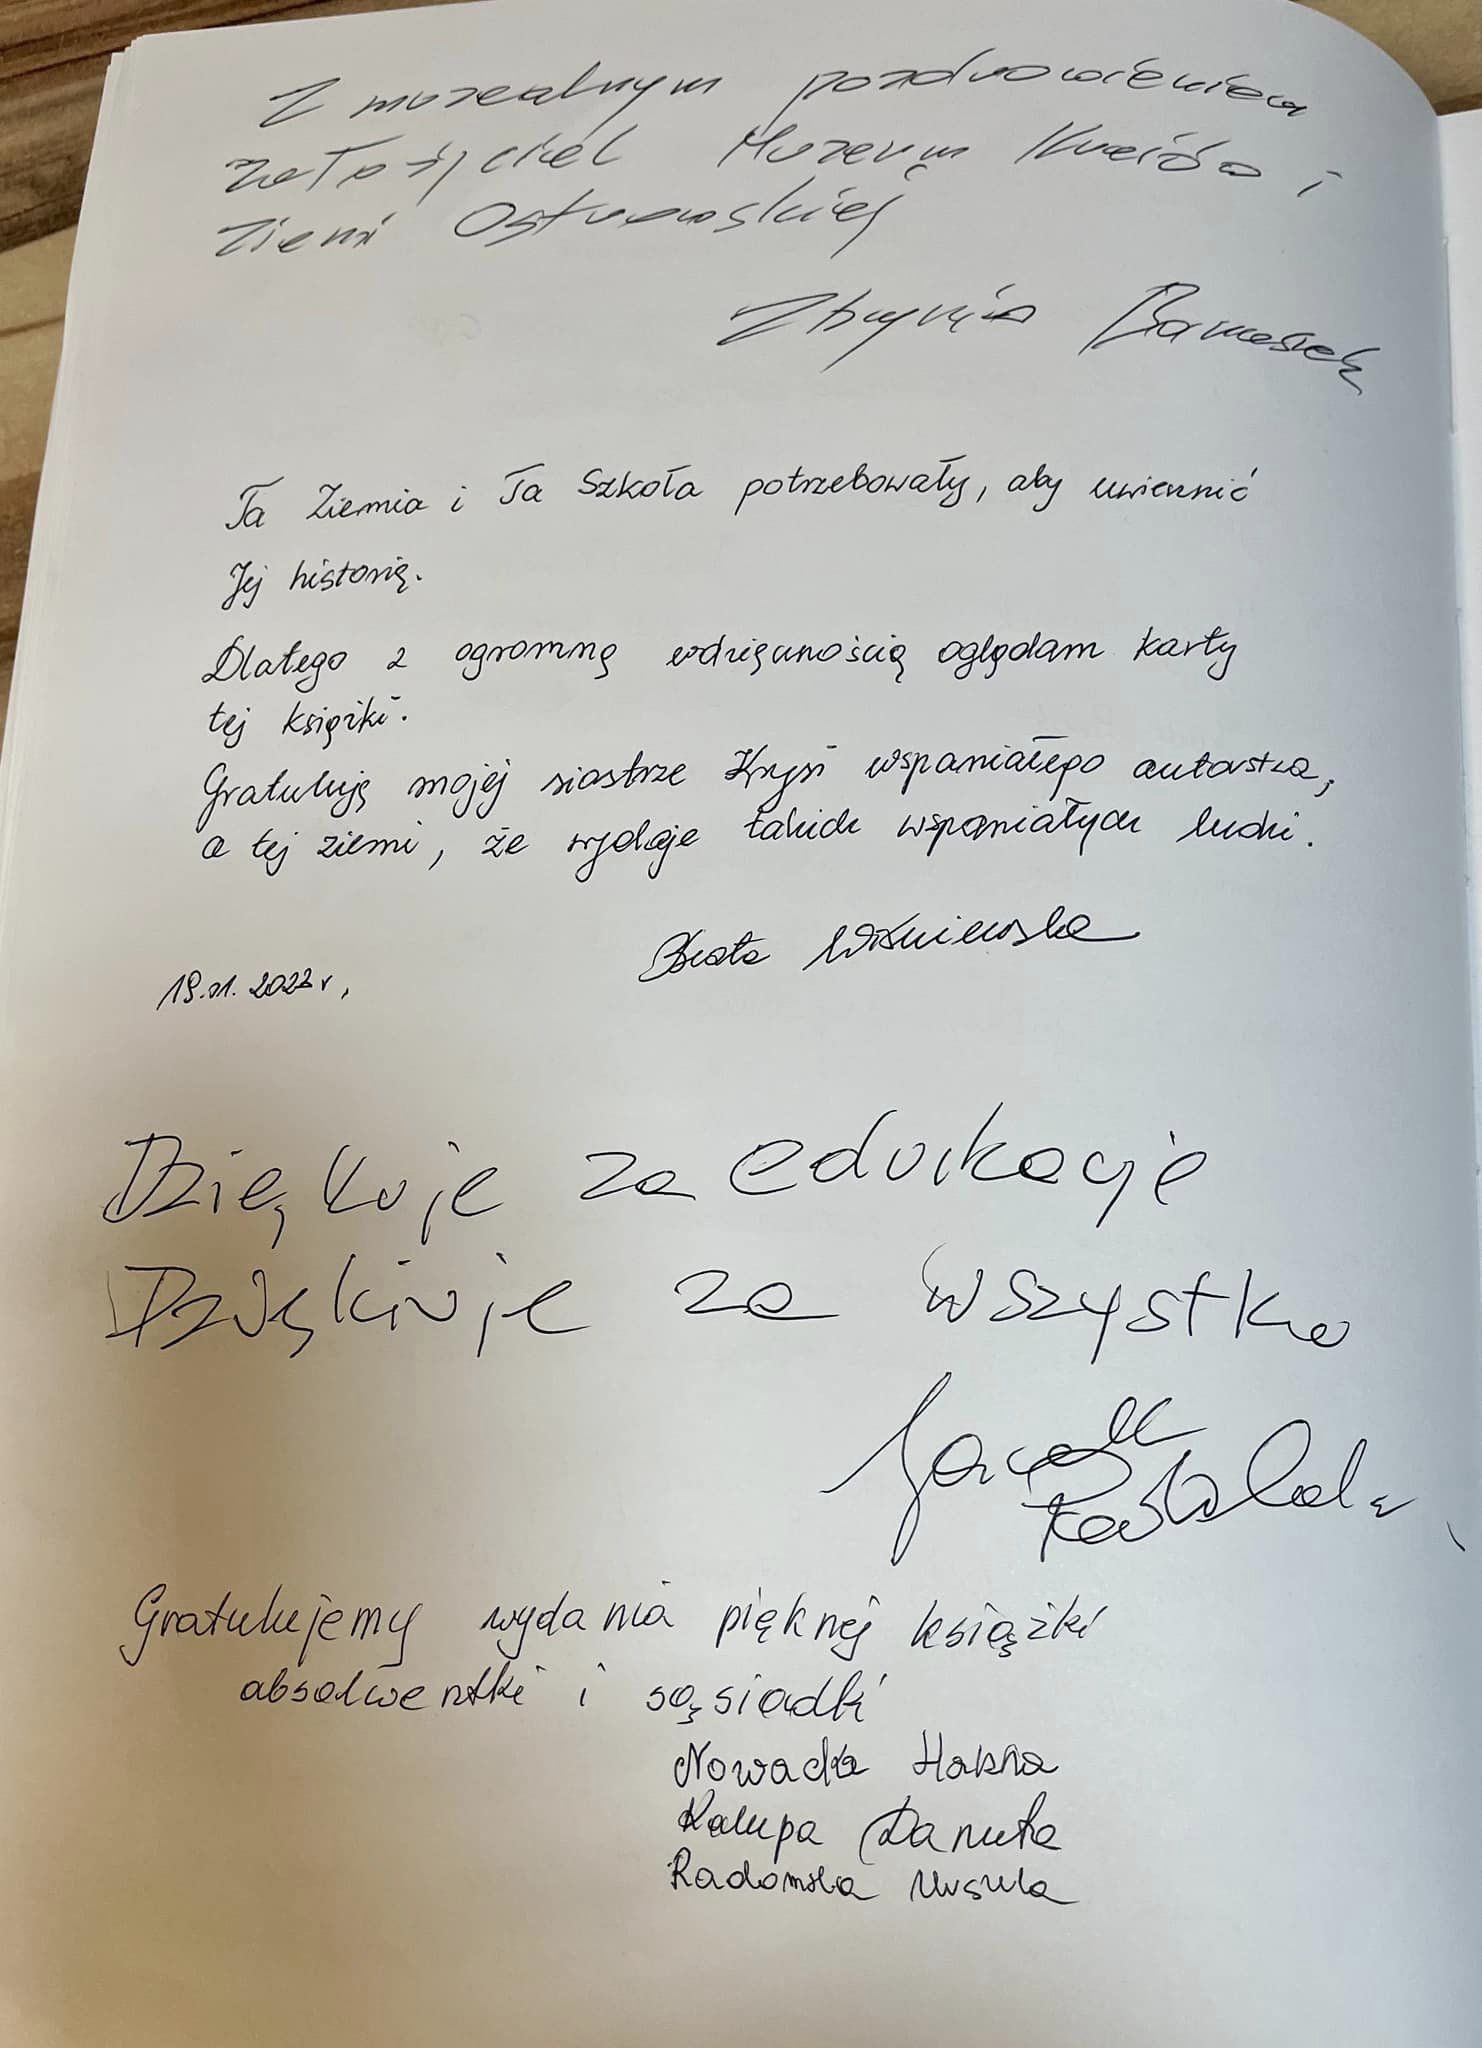 Z muzealnym pozdrowieniem
założyciel Muzeum i
Ziemi Ostrowskiej
Ta Ziemia i Ta Szkoła potrzebowały, aby uwiecznić
Jej historię.
Dlatego z ogromną wdzięcznością oglądam karty
tej książki.
Gratuluję mojej siostrze Krysi wspaniałego autorstwa,
a tej ziemi, że wydaje takich wspaniałych ludzi.
Beata Wiśniewska
19.01.2023 r,
Dziękuje za edukacje
Dziękuje za wszystko
Jacek
Gratulujemy wydania pięknej książki
absolwentki i sąsiadki
Nowacka Halina
Kałupa Danuta
Radomska Urszula